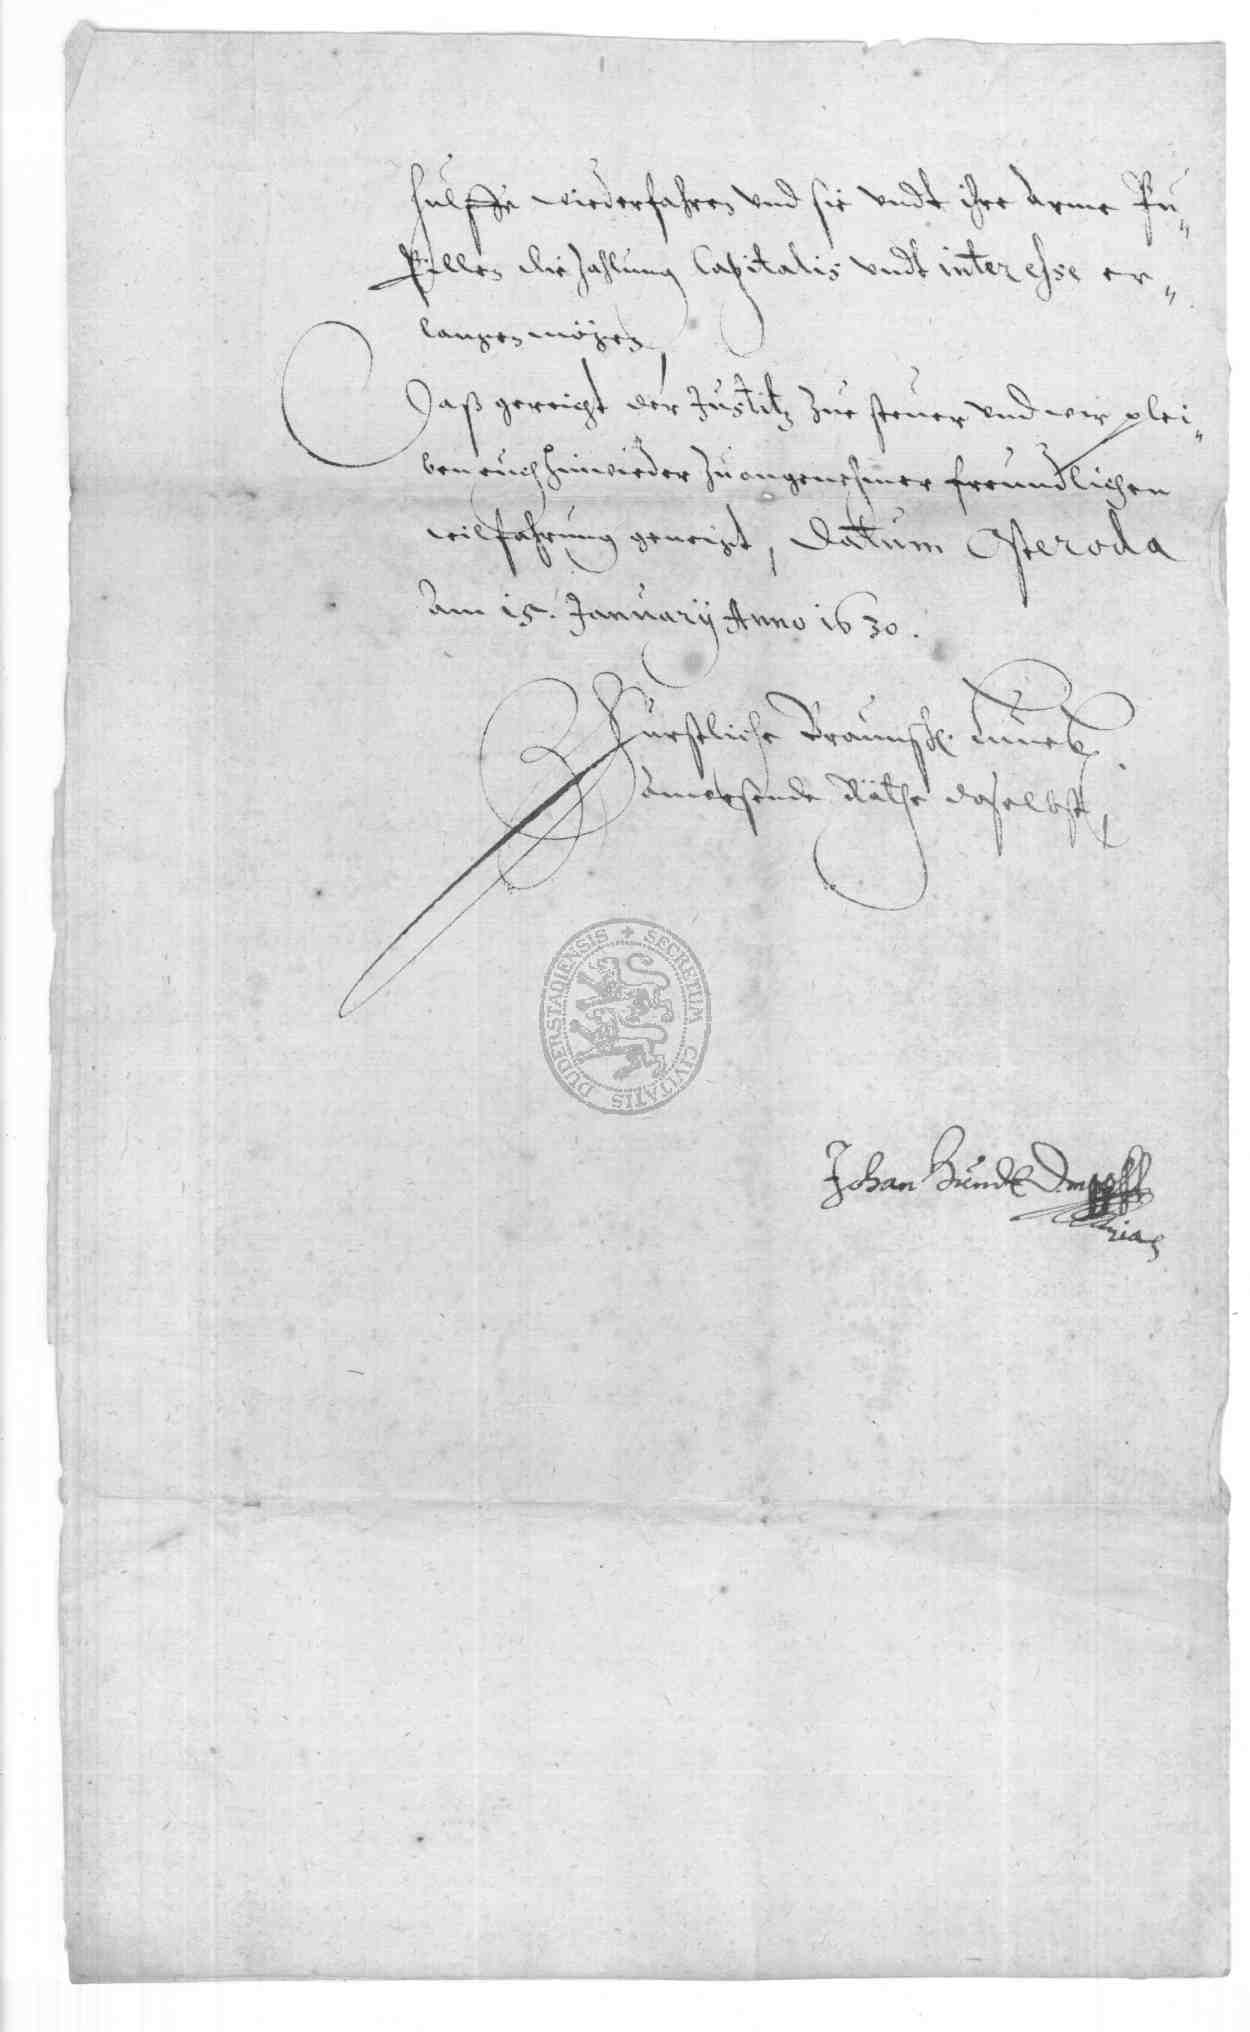 hulffe wiederfahren und sie undt ihre arme Pu=
pillen die zahlung Capitalis undt interesse er=
langen mögen,
Daß gereicht der Justitz zue steuer und wir plei=
ben euch hinwieder zu angenehmer freundlichen
wilfahrung geneigt, Datum Osteroda
am 15. Januarij Anno 1630.
Furstliche Braunsch. Luneb.
anwesende Räthe daselbst
SECRETUM CIVITATIS DUDERSTADIENSIS
Johan Hundt